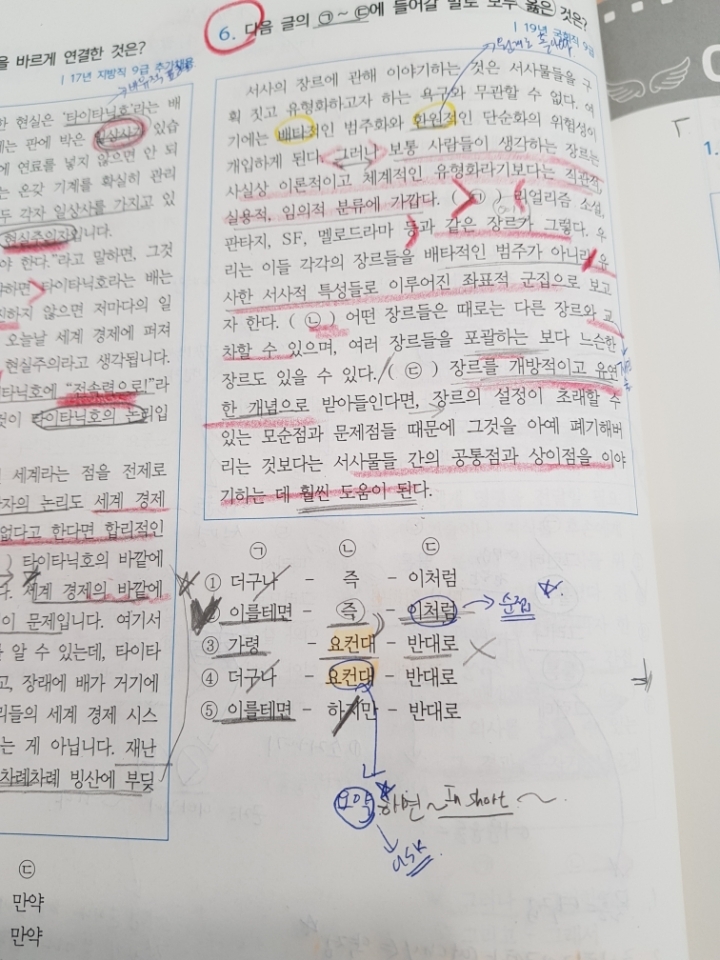 을 바르게 연결한 것은?
| 17년 지방직 9급 추가채용
한 현실은 '타이타닉호'라는 배
에는 판에 박은 일상사가 있습
에 연료를 넣지 않으면 안 되
는 온갖 기계를 확실히 관리
두 각자 일상사를 가지고 있
현실주의자입니다.
야 한다."라고 말하면, 그것
하면 타이타닉호라는 배는
지하지 않으면 저마다의 일
오늘날 세계 경제에 퍼져
현실주의라고 생각됩니다.
타닉호에 "전속력으로!"라
것이 타이타닉호의 논리입
세계라는 점을 전제로
자의 논리도 세계 경제
없다고 한다면 합리적인
) 타이타닉호의 바깥에
다. 세계 경제의 바깥에
이 문제입니다. 여기서
알 수 있는데, 타이타
고, 장래에 배가 거기에
리들의 세계 경제 시스
는 게 아닙니다. 재난
차례차례 빙산에 부딪
㉢
만약
만약
6. 다음 글의 ㉠~㉢에 들어갈 말로 모두 옳은 것은?
| 19년 국회직 9급
서사의 장르에 관해 이야기하는 것은 서사물들을 구
획 짓고 유형화하고자 하는 욕구와 무관할 수 없다. 여
기에는 배타적인 범주화와 환원적인 단순화의 위험성이
개입하게 된다. 그러나 보통 사람들이 생각하는 장르는
사실상 이론적이고 체계적인 유형화라기보다는 직관적,
실용적, 임의적 분류에 가깝다. ( ㉠ ) 리얼리즘 소설,
판타지, SF, 멜로드라마 등과 같은 장르가 그렇다. 우
리는 이들 각각의 장르들을 배타적인 범주가 아니라 유
사한 서사적 특성들로 이루어진 좌표적 군집으로 보고
자 한다. ( ㉡ ) 어떤 장르들은 때로는 다른 장르와 교
차할 수 있으며, 여러 장르들을 포괄하는 보다 느슨한
장르도 있을 수 있다. ( ㉢ ) 장르를 개방적이고 유연
한 개념으로 받아들인다면, 장르의 설정이 초래할 수
있는 모순점과 문제점들 때문에 그것을 아예 폐기해버
리는 것보다는 서사물들 간의 공통점과 상이점을 이야
기하는 데 훨씬 도움이 된다.
㉠ ㉡ ㉢
① 더구나 - 즉 - 이처럼
② 이를테면 - 즉 - 이처럼 → 순접
③ 가령 - 요컨대 - 반대로
④ 더구나 - 요컨대 - 반대로
⑤ 이를테면 - 하지만 - 반대로
요약하면 ~ In short ~
ask
1.